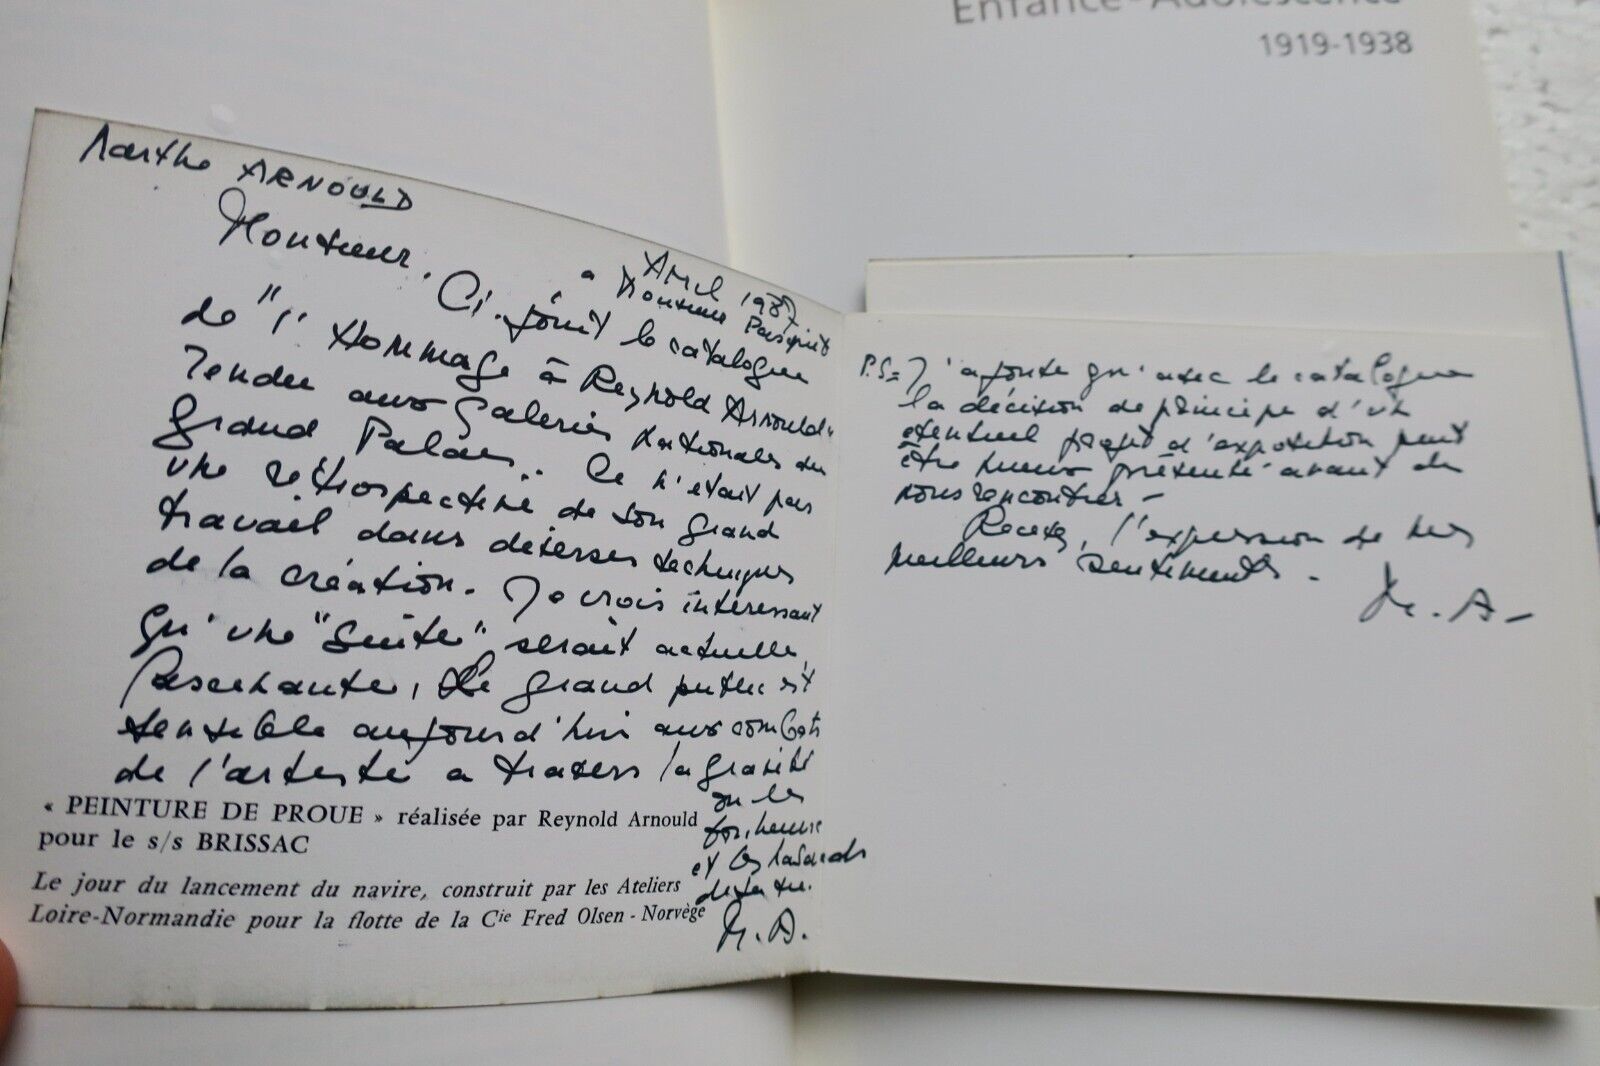 Enfance-Adolescence
1919-1938
Marthe ARNOULD
Monsieur,
Avril 1987
à Monsieur Pasquet
Ci-joint le catalogue
de "l'Hommage à Reynold Arnould"
rendu aux Galeries Nationales du
Grand Palais. Ce n'était pas
une rétrospective de son grand
travail dans diverses techniques
de la création. Je crois intéressant
qu'une "Suite" serait actuelle,
attachante, le grand public est
sensible aujourd'hui aux combats
de l'artiste à travers la gravité
ou les
et les hasards
M. A.
« PEINTURE DE PROUE » réalisée par Reynold Arnould
pour le s/s BRISSAC
Le jour du lancement du navire, construit par les Ateliers
Loire-Normandie pour la flotte de la Cie Fred Olsen - Norvège
P.S = J'ajoute qu'avec le catalogue
la décision de principe d'un
éventuel projet d'exposition peut
être mieux présenté avant de
nous rencontrer -
Recevez, l'expression de mes
meilleurs sentiments.
M. A -